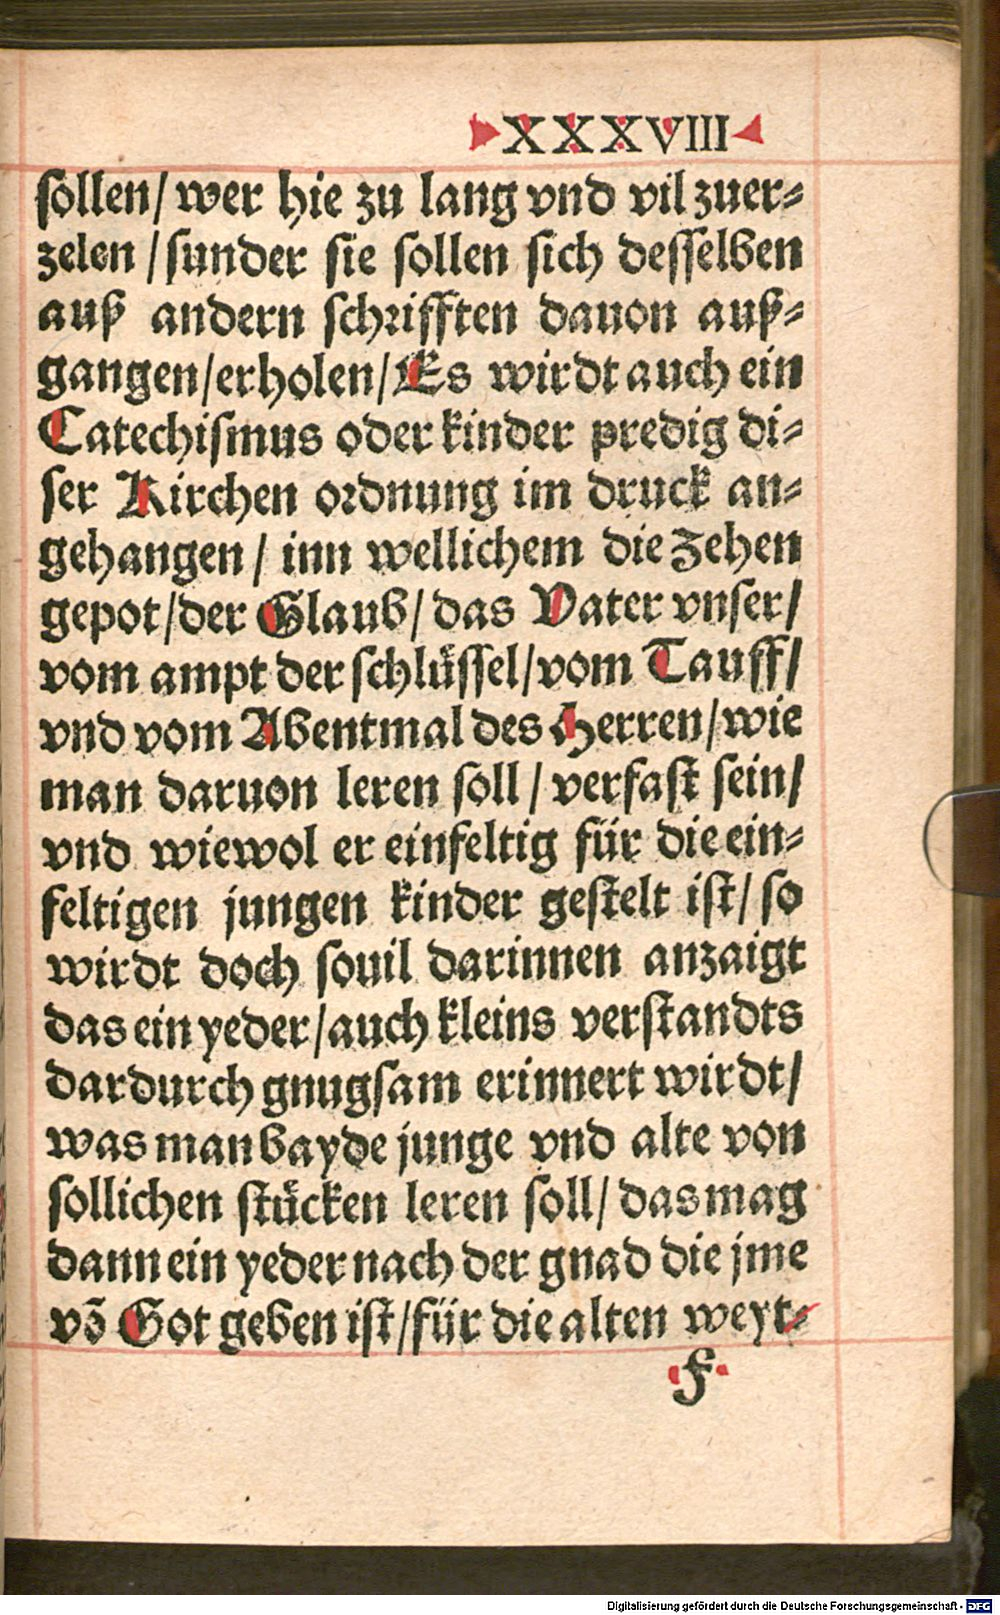 XXXVIII
sollen/ wer hie zu lang vnd vil zuer⸗
zelen / sunder sie sollen sich desselben
auß andern schrifften dauon auß⸗
gangen/erholen/ Es wirdt auch ein
Catechismus oder kinder predig di⸗
ser Kirchen ordnung im druck an⸗
gehangen / inn wellichem die zehen
gepot/der Glaub/ das Vater vnser/
vom ampt der schlüssel/vom Tauff/
vnd vom Abentmal des Herren/wie
man daruon leren soll / verfast sein/
vnd wiewol er einfeltig für die ein⸗
feltigen jungen kinder gestelt ist/ so
wirdt doch souil darinnen anzaigt
das ein yeder/auch kleins verstandts
dardurch gnugsam erinnert wirdt/
was man bayde junge vnd alte von
sollichen stücken leren soll/ das mag
dann ein yeder nach der gnad die jme
võ Got geben ist/für die alten weyt⸗
F
Digitalisierung gefördert durch die Deutsche Forschungsgemeinschaft - DFG